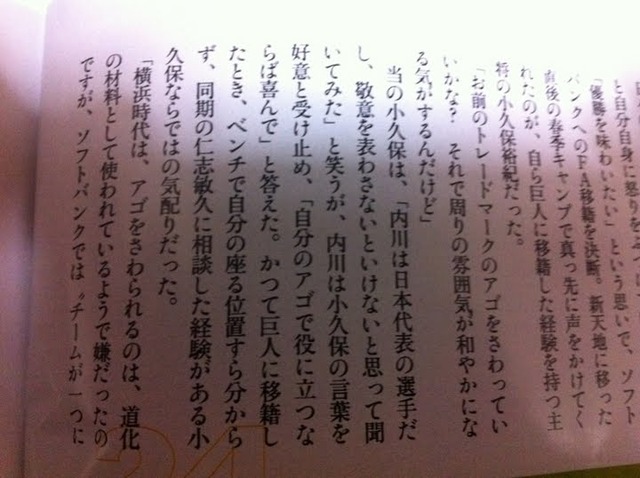 と自分自身に怒りをつけ
「優勝を味わいたい」という思いで、ソフト
バンクへのFA移籍を決断。新天地に移った
直後の春季キャンプで真っ先に声をかけてく
れたのが、自ら巨人に移籍した経験を持つ主
将の小久保裕紀だった。
「お前のトレードマークのアゴをさわってい
いかな？　それで周りの雰囲気が和やかにな
る気がするんだけど」
当の小久保は、「内川は日本代表の選手だ
し、敬意を表わさないといけないと思って聞
いてみた」と笑うが、内川は小久保の言葉を
好意と受け止め、「自分のアゴで役に立つな
らば喜んで」と答えた。かつて巨人に移籍し
たとき、ベンチで自分の座る位置すら分から
ず、同期の仁志敏久に相談した経験がある小
久保ならではの気配りだった。
「横浜時代は、アゴをさわられるのは、道化
の材料として使われているようで嫌だったの
ですが、ソフトバンクでは〝チームが一つに